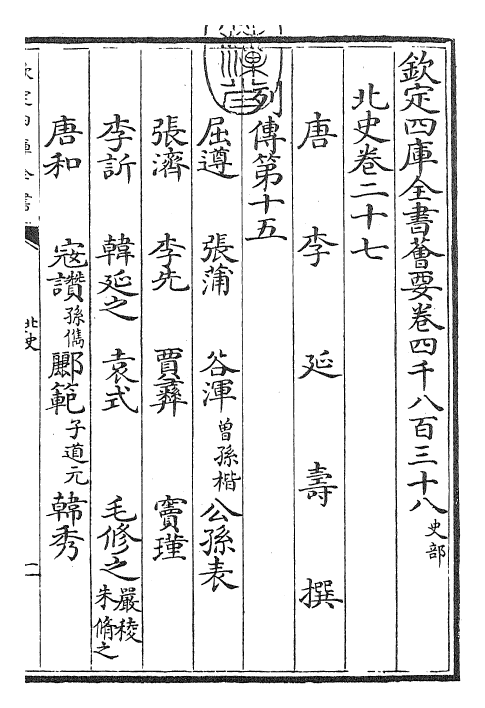 欽定四庫全書薈要卷四千八百三十八史部
北史卷二十七
唐李延壽撰
列傳第十五
屈遵 張蒲 谷渾曾孫楷 公孫表
張濟 李先 賈彝 竇瑾
李訢 韓延之 袁式 毛修之嚴稜朱脩之
唐和 寇讚孫儁 酈範子道元 韓秀
北史
一